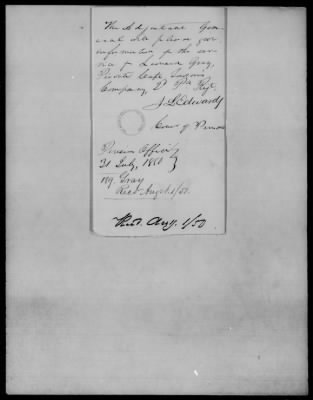 The Adjutant Gen-
eral will please give
information of the ser-
vice of Gray,
Private Capt.
Company, 2d Regt.
J. L. Edwards
Com. of Pensions
Pension Office
31 July, 1850
Gray
Recd. Aug. 1/50.
Aug. 1/50